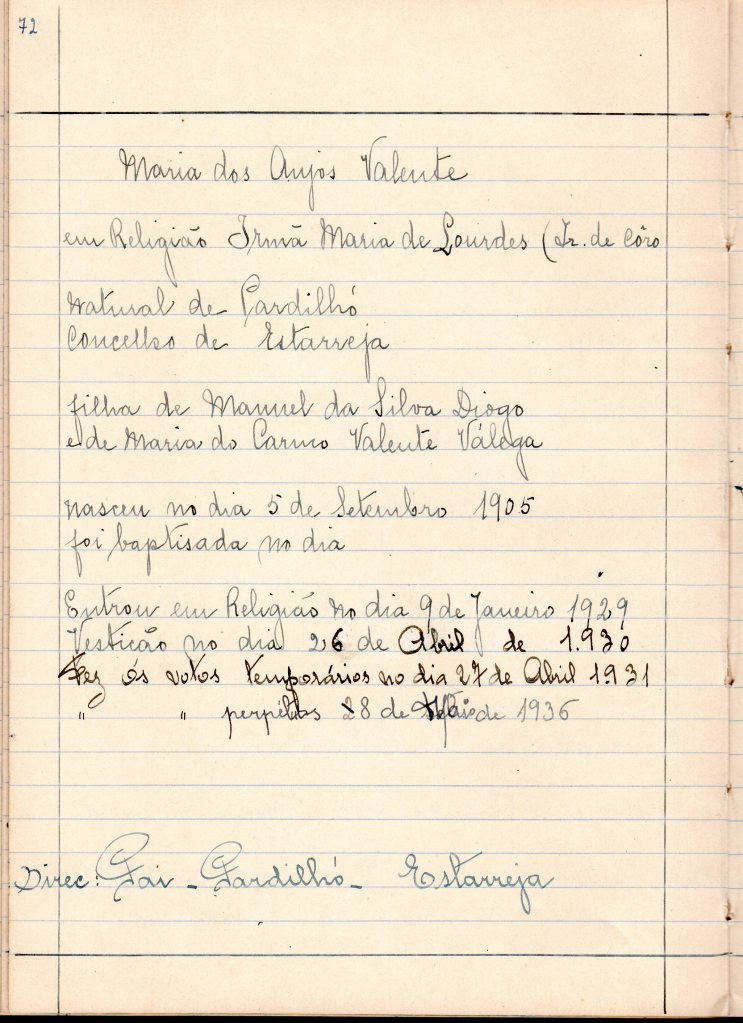 72
Maria dos Anjos Valente
em Religião Irmã Maria de Lourdes (Ir. de Côro
Natural de Pardilhó
Concelho de Estarreja
filha de Manuel da Silva Diogo
e de Maria do Carmo Valente Válega
nasceu no dia 5 de Setembro 1905
foi baptisada no dia
Entrou em Religião no dia 9 de Janeiro 1929
Vestição no dia 26 de Abril de 1.930
Fez ós votos temporários no dia 27 de Abril 1931
" " perpétuos 28 de Maio de 1936
Direc: Pai - Pardilhó - Estarreja